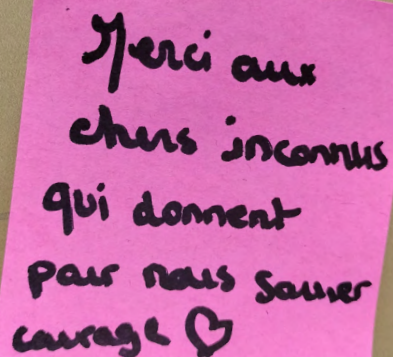 Merci aux
chers inconnus
qui donnent
pour nous sauver
courage ♡